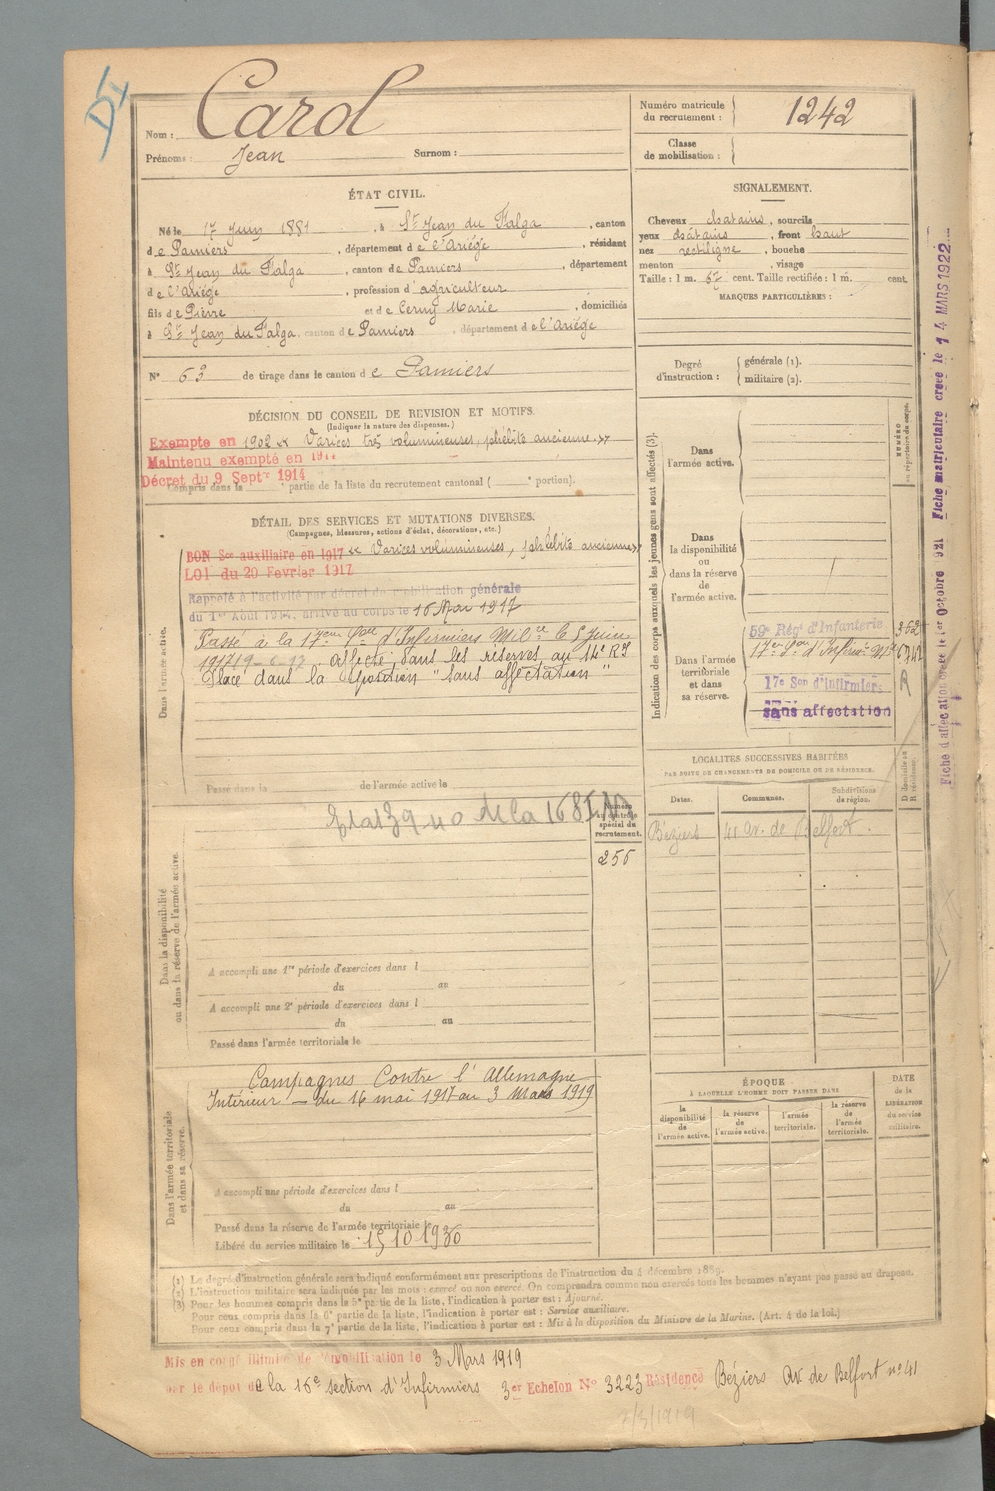 DI
Nom : Carol
Prénoms : Jean Surnom :
Numéro matricule du recrutement : 1242
Classe de mobilisation :
ÉTAT CIVIL.
Né le 17 Juin 1881, à St Jean du Falga, canton
de Pamiers, département de l'Ariège, résidant
à St Jean du Falga, canton de Pamiers, département
de l'Ariège, profession d'agriculteur
fils de Pierre et de Cerny Marie, domiciliés
à St Jean du Falga, canton de Pamiers, département de l'Ariège
N° 63 de tirage dans le canton de Pamiers
SIGNALEMENT.
Cheveux chatains, sourcils
yeux chatains, front haut
nez rectiligne, bouche
menton, visage
Taille : 1 m. 67 cent. Taille rectifiée : 1 m. cent.
MARQUES PARTICULIÈRES :
Degré d'instruction : générale (1). militaire (2).
DÉCISION DU CONSEIL DE REVISION ET MOTIFS.
(Indiquer la nature des dispenses.)
Exempté en 1902 « Varices très volumineuses, phlébite ancienne. »
Maintenu exempté en 1914
Décret du 9 Septre 1914
Compris dans la ° partie de la liste du recrutement cantonal ( ° portion).
DÉTAIL DES SERVICES ET MUTATIONS DIVERSES.
(Campagnes, blessures, actions d'éclat, décorations, etc.)
BON Sce auxiliaire en 1917 « Varices volumineuses, phlébite ancienne »
LOI du 20 Février 1917
Rappelé à l'activité par décret de mobilisation générale
du 1er Août 1914, arrivé au corps le 16 Mai 1917
Passé à la 17eme Son d'Infirmiers Milre le 5 Juin
1917 affecté dans les réserves au 14e RI
Placé dans la position "sans affectation"
Dans l'armée active.
Passé dans la de l'armée active le
Numéro au contrôle spécial du recrutement.
256
Dans la disponibilité ou dans la réserve de l'armée active.
A accompli une 1re période d'exercices dans l
du au
A accompli une 2e période d'exercices dans l
du au
Passé dans l'armée territoriale le
Dans l'armée territoriale et dans sa réserve.
Campagnes Contre l'Allemagne
Intérieur - du 16 mai 1917 au 3 mars 1919
A accompli une période d'exercices dans l
du au
Passé dans la réserve de l'armée territoriale le
Libéré du service militaire le 15 10 1930
Indication des corps auxquels les jeunes gens sont affectés (3).
NUMÉRO au répertoire du corps.
Dans l'armée active.
Dans la disponibilité ou dans la réserve de l'armée active.
Dans l'armée territoriale et dans sa réserve.
59e Régt d'Infanterie
17e Son d'Infirm. Mil
17e Son d'Infirmiers
sans affectation
LOCALITÉS SUCCESSIVES HABITÉES
PAR SUITE DE CHANGEMENTS DE DOMICILE OU DE RÉSIDENCE.
Dates. Communes. Subdivisions de région. D domicile ou R résidence.
Béziers 41 av. de Belfort.
ÉPOQUE
À LAQUELLE L'HOMME DOIT PASSER DANS
la disponibilité de l'armée active.
la réserve de l'armée active.
l'armée territoriale.
la réserve de l'armée territoriale.
DATE de la LIBÉRATION du service militaire.
Fiche d'affectation créée le 1er Octobre 921 Fiche matriculaire créée le 14 MARS 1922
(1) Le degré d'instruction générale sera indiqué conformément aux prescriptions de l'instruction du 4 décembre 1889.
(2) L'instruction militaire sera indiquée par les mots : exercé ou non exercé. On comprendra comme non exercés tous les hommes n'ayant pas passé au drapeau.
(3) Pour les hommes compris dans la 5e partie de la liste, l'indication à porter est : Ajourné.
Pour ceux compris dans la 6e partie de la liste, l'indication à porter est : Service auxiliaire.
Pour ceux compris dans la 7e partie de la liste, l'indication à porter est : Mis à la disposition du Ministre de la Marine. (Art. 4 de la loi.)
Mis en congé illimité de démobilisation le 3 Mars 1919
par le dépôt de la 16e section d'Infirmiers 3er Echelon N° 3223 Résidence Béziers Av. de Belfort n° 41